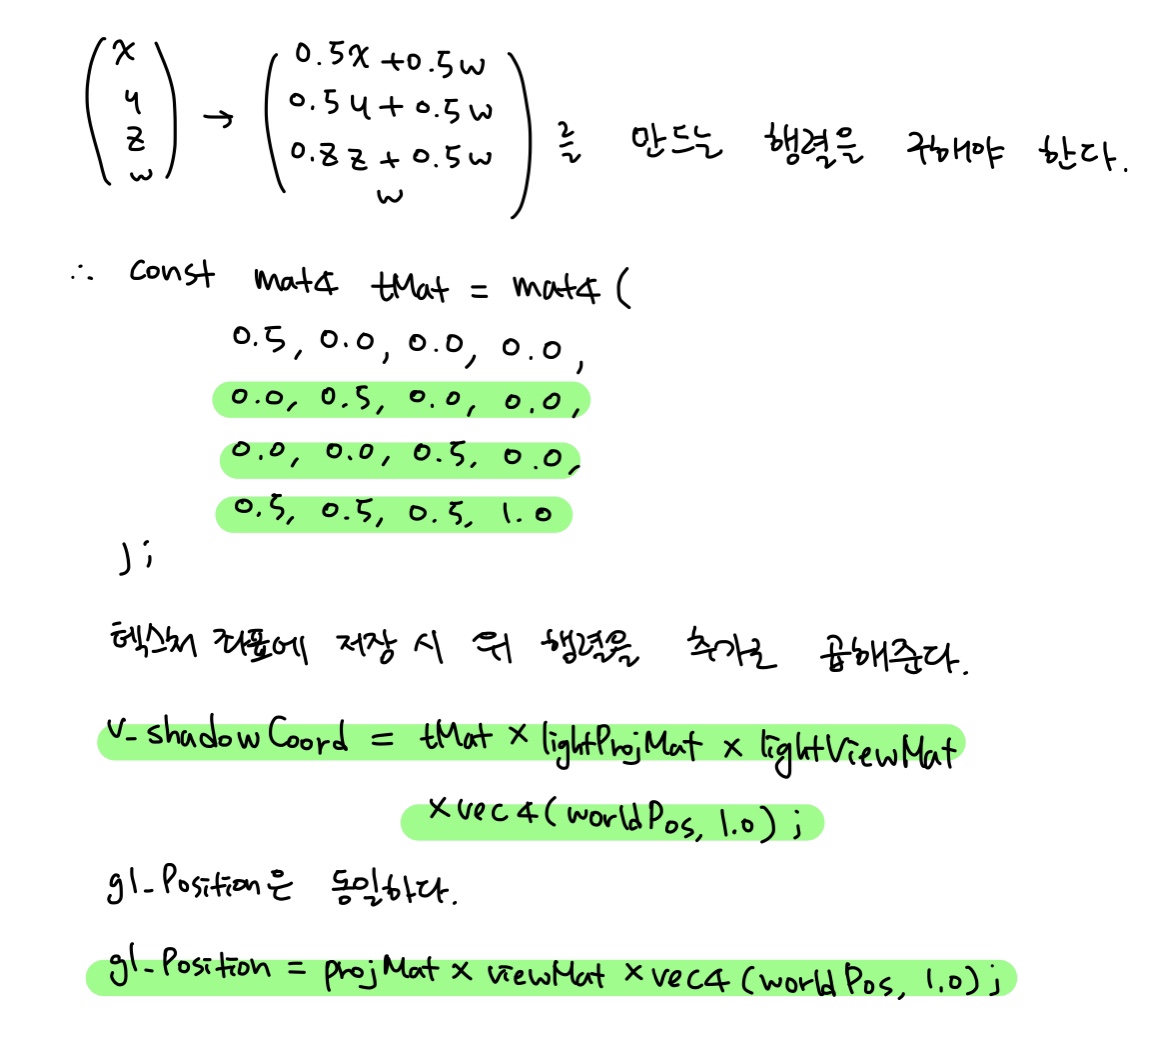 (x y z w) → (0.5x+0.5w 0.5y+0.5w 0.8z+0.5w w) 를 만드는 행렬을 구해야 한다.
∴ const mat4 tMat = mat4 (
0.5, 0.0, 0.0, 0.0,
0.0, 0.5, 0.0, 0.0,
0.0, 0.0, 0.5, 0.0,
0.5, 0.5, 0.5, 1.0
);
텍스처 좌표에 저장 시 위 행렬을 추가로 곱해준다.
v_shadowCoord = tMat × lightProjMat × lightViewMat
×vec4(worldPos, 1.0);
gl_Position은 동일하다.
gl_Position = projMat × viewMat × vec4 (worldPos, 1.0);